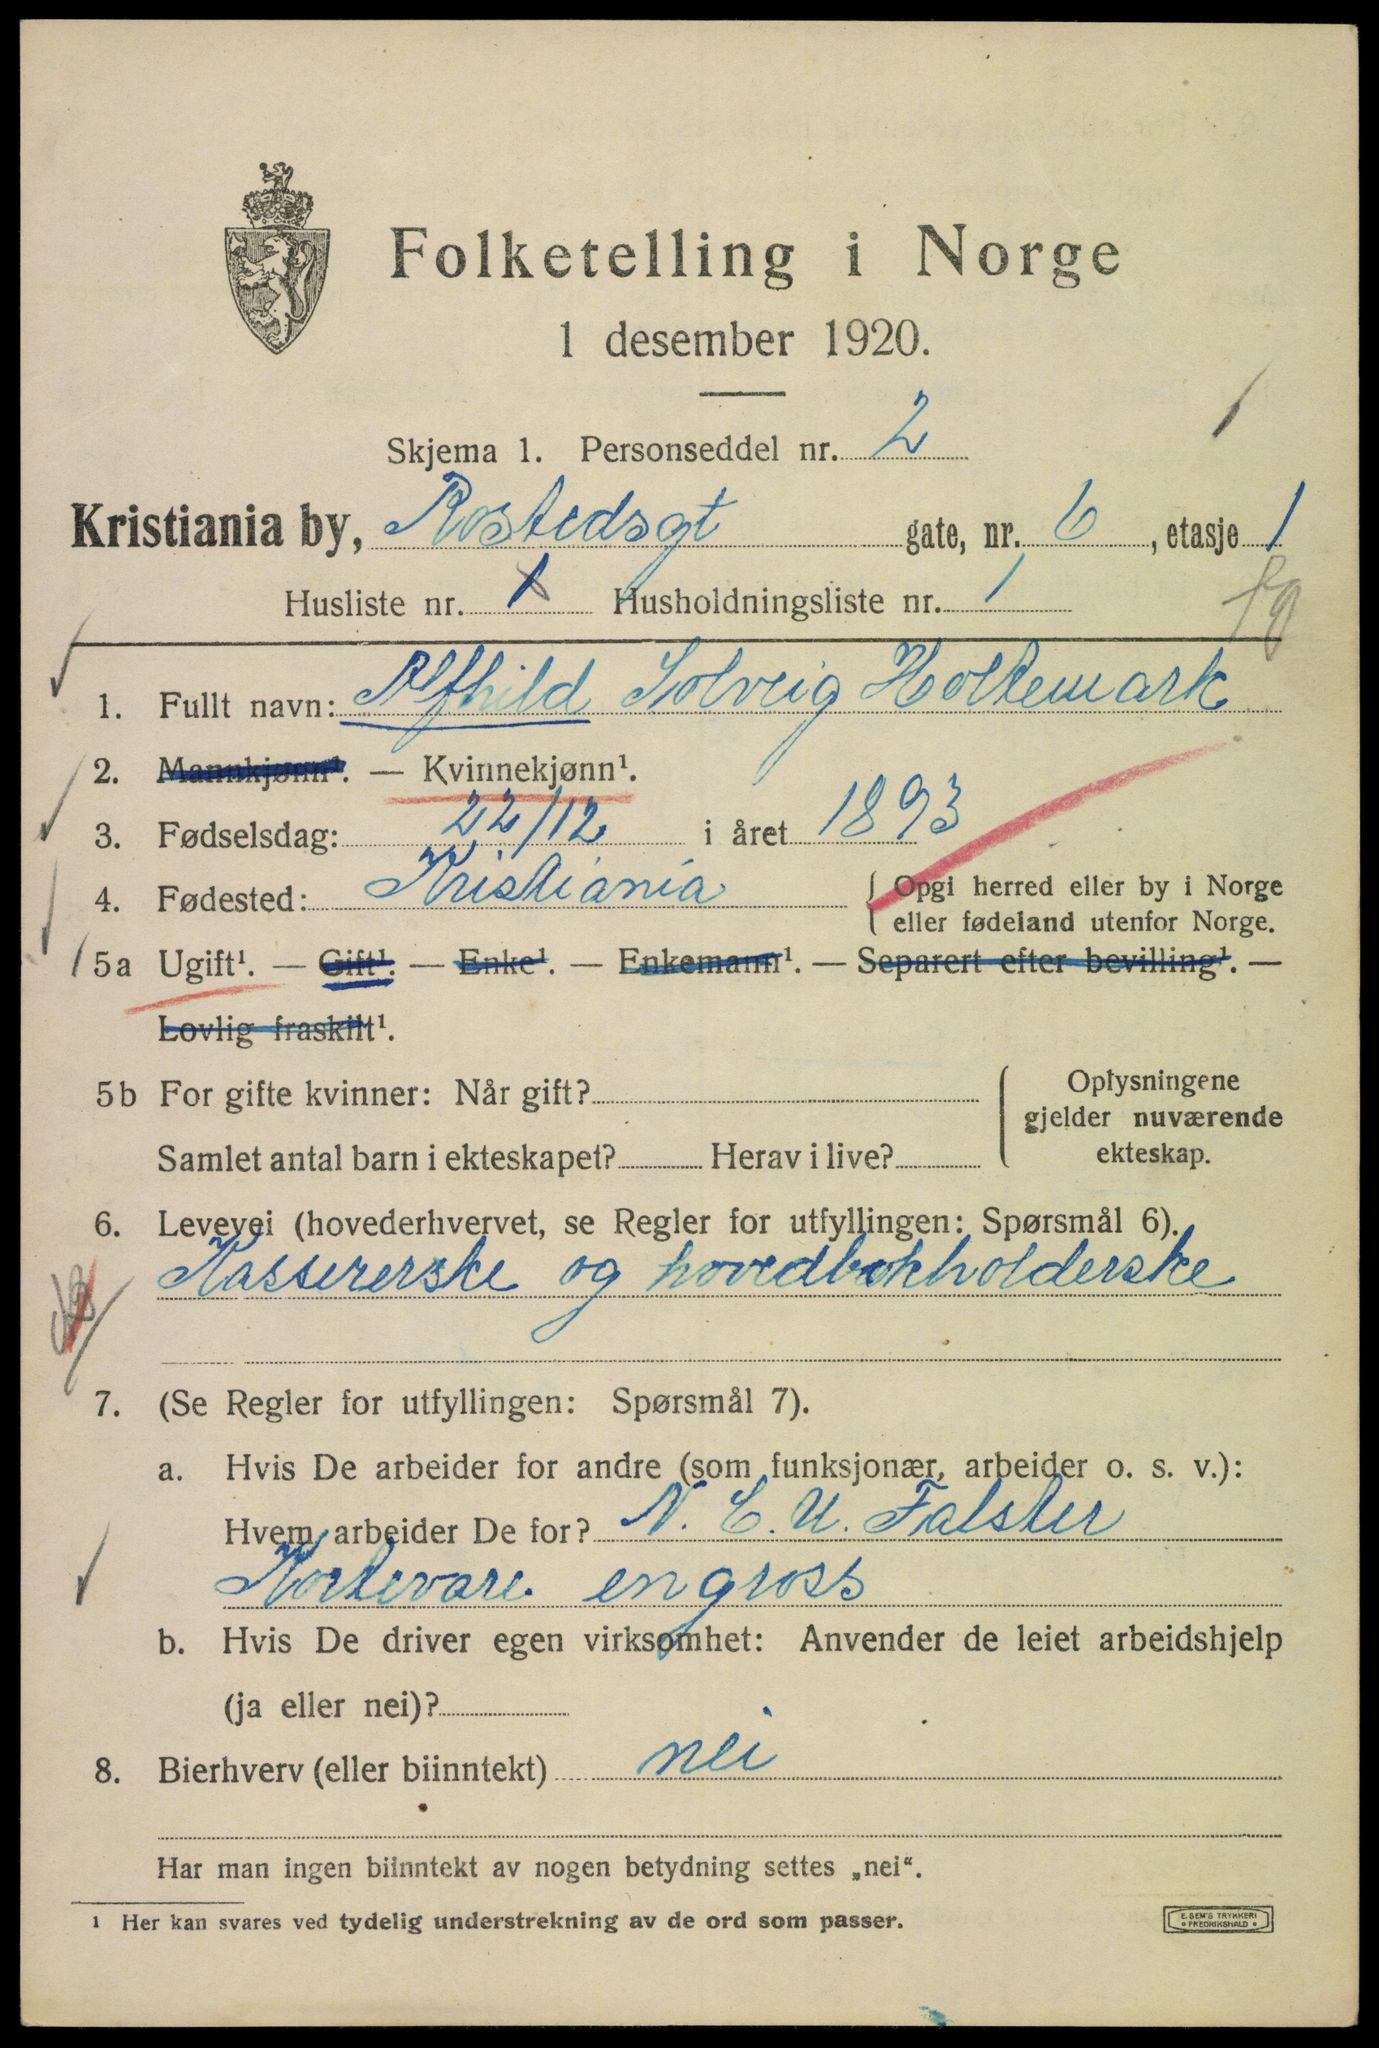 Folketelling i Norge
1 desember 1920.
Skjema 1. Personseddel nr. 2
Kristiania by, Rostedsgt gate, nr. 6, etasje 1
Husliste nr. 1 Husholdningsliste nr. 1
1. Fullt navn: Alfhild Solveig Holtemark
2. Mannkjønn¹. — Kvinnekjønn¹.
3. Fødselsdag: 22/12 i året 1893
4. Fødested: Kristiania { Opgi herred eller by i Norge
eller fødeland utenfor Norge.
5a Ugift¹. — Gift¹. — Enke¹. — Enkemann¹. — Separert efter bevilling¹. —
Lovlig fraskilt¹.
5b For gifte kvinner: Når gift?
Samlet antal barn i ekteskapet? Herav i live?
Oplysningene
gjelder nuværende
ekteskap.
6. Levevei (hovederhvervet, se Regler for utfyllingen: Spørsmål 6).
Kassererske og hovedbokholderske
7. (Se Regler for utfyllingen: Spørsmål 7).
a. Hvis De arbeider for andre (som funksjonær, arbeider o. s. v.):
Hvem arbeider De for? N. C. U. Falster
Kortevare engross
b. Hvis De driver egen virksomhet: Anvender de leiet arbeidshjelp
(ja eller nei)?
8. Bierhverv (eller biinntekt) nei
Har man ingen biinntekt av nogen betydning settes „nei“.
¹ Her kan svares ved tydelig understrekning av de ord som passer.
E. SEM'S TRYKKERI
FREDRIKSHALD